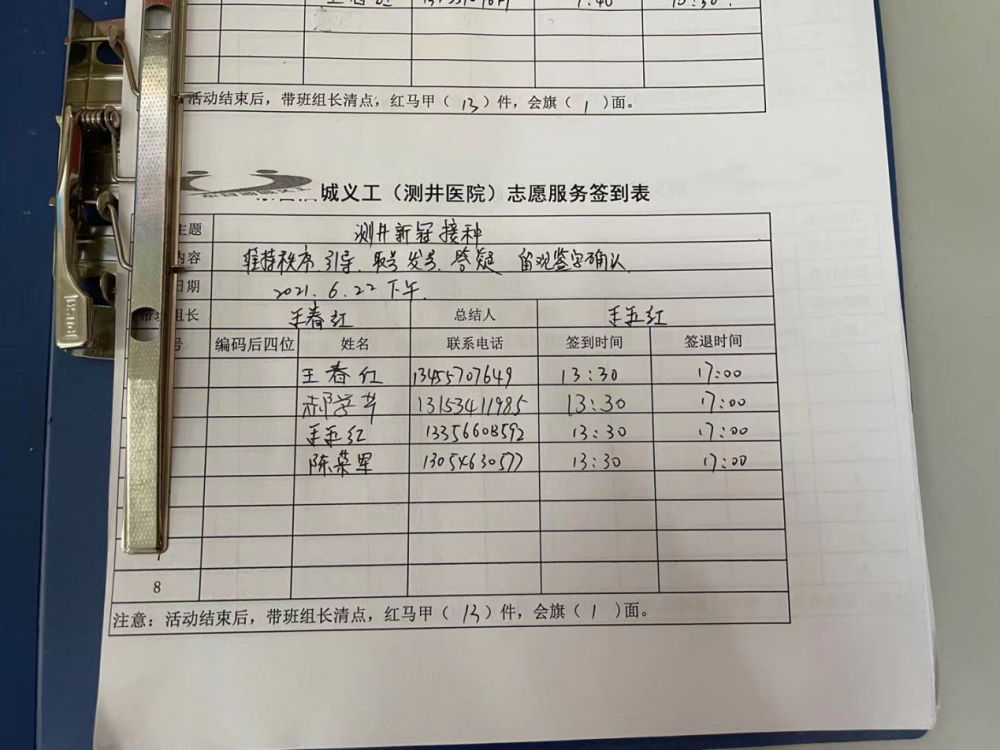 活动结束后，带班组长清点，红马甲（ 13 ）件，会旗（ 1 ）面。
城义工（测井医院）志愿服务签到表
主题 测井新冠接种
内容 维持秩序.引导.取号发号.答疑 留观签字确认.
日期 2021.6.22下午.
组长 王春红 总结人 王玉红
号 编码后四位 姓名 联系电话 签到时间 签退时间
王春红 13455707649 13:30 17:00
郝学芹 13153411985 13:30 17:00
王玉红 13356608592 13:30 17:00
陈荣军 13054630577 13:30 17:00
8
注意：活动结束后，带班组长清点，红马甲（ 13 ）件，会旗（ 1 ）面。